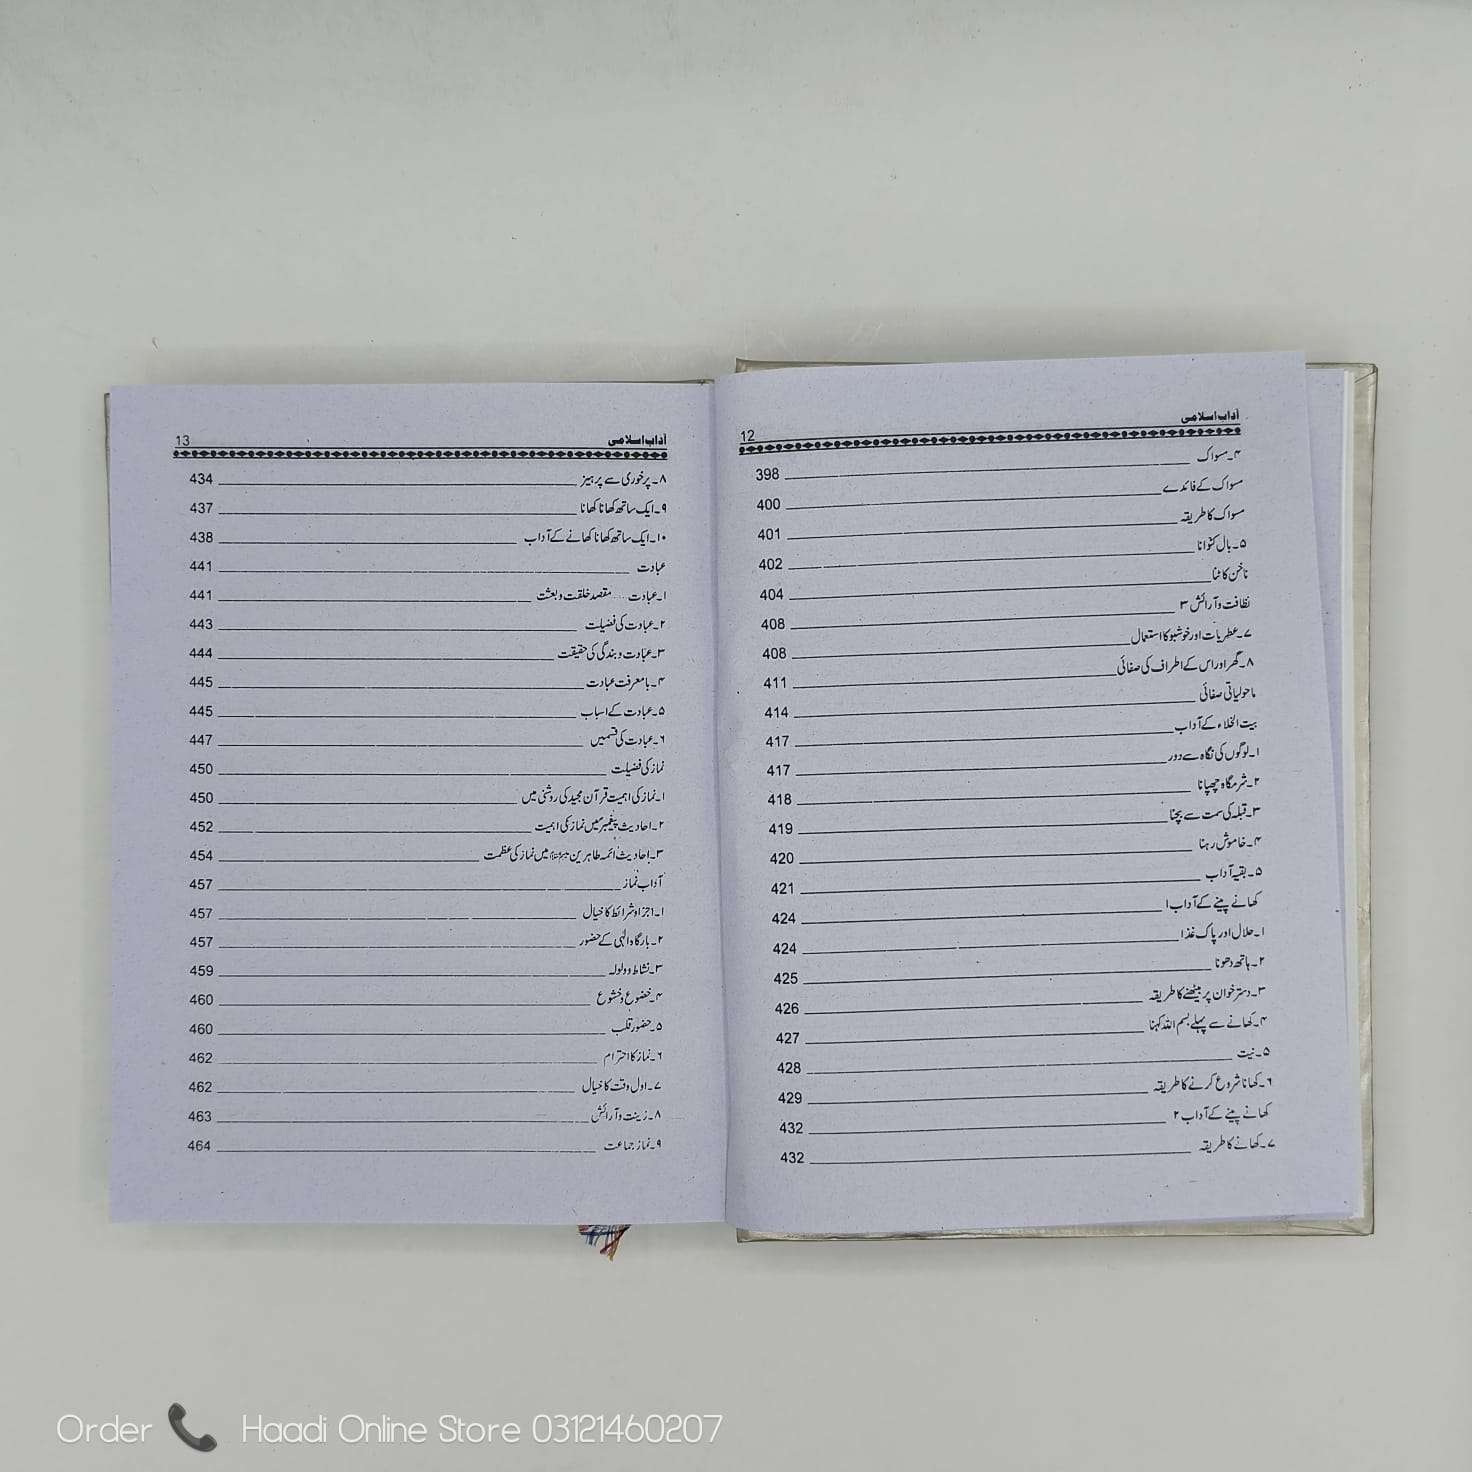 آداب اسلامی 12
۴۔ مسواک 398
مسواک کے فائدے 400
مسواک کا طریقہ 401
۵۔ بال کٹوانا 402
ناخن کاٹنا 404
نظافت و آرائش ۳ 408
۷۔ عطریات اور خوشبو کا استعمال 408
۸۔ گھر اور اس کے اطراف کی صفائی 411
ماحولیاتی صفائی 414
بیت الخلاء کے آداب 417
۱۔ لوگوں کی نگاہ سے دور 417
۲۔ شرمگاہ چھپانا 418
۳۔ قبلہ کی سمت سے بچنا 419
۴۔ خاموش رہنا 420
۵۔ بقیہ آداب 421
کھانے پینے کے آداب ۱ 424
۱۔ حلال اور پاک غذا 424
۲۔ ہاتھ دھونا 425
۳۔ دسترخوان پر بیٹھنے کا طریقہ 426
۴۔ کھانے سے پہلے بسم اللہ کہنا 427
۵۔ نیت 428
۶۔ کھانا شروع کرنے کا طریقہ 429
کھانے پینے کے آداب ۲ 432
۷۔ کھانے کا طریقہ 432
آداب اسلامی 13
۸۔ پرخوری سے پرہیز 434
۹۔ ایک ساتھ کھانا کھانا 437
۱۰۔ ایک ساتھ کھانا کھانے کے آداب 438
عبادت 441
۱۔ عبادت .... مقصد خلقت و بعثت 441
۲۔ عبادت کی فضیلت 443
۳۔ عبادت و بندگی کی حقیقت 444
۴۔ بامعرفت عبادت 445
۵۔ عبادت کے اسباب 445
۶۔ عبادت کی قسمیں 447
نماز کی فضیلت 450
۱۔ نماز کی اہمیت قرآن مجید کی روشنی میں 450
۲۔ احادیث پیغمبرؐ میں نماز کی اہمیت 452
۳۔ احادیث ائمہ طاہرین میں نماز کی عظمت 454
آداب نماز 457
۱۔ اجزا و شرائط کا خیال 457
۲۔ بارگاہ الٰہی کے حضور 457
۳۔ نشاط و ولولہ 459
۴۔ خضوع و خشوع 460
۵۔ حضور قلب 460
۶۔ نماز کا احترام 462
۷۔ اول وقت کا خیال 462
۸۔ زینت و آرائش 463
۹۔ نماز جماعت 464
Order Haadi Online Store 03121460207